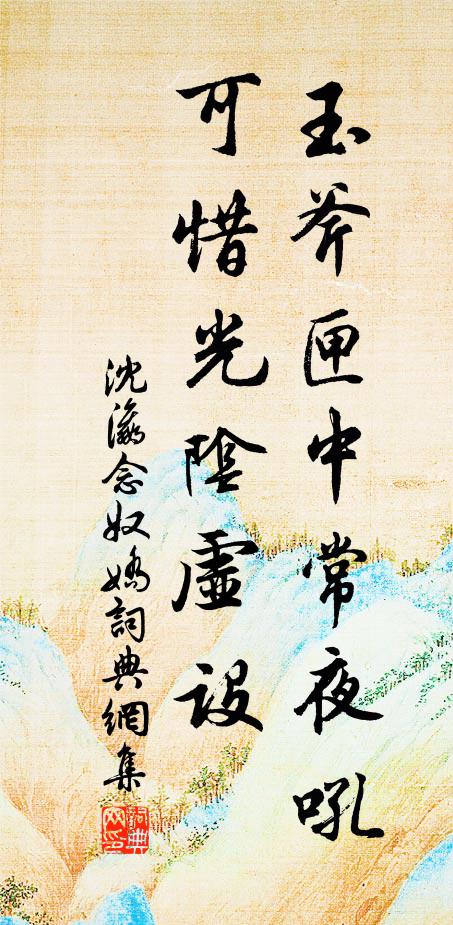 玉斧匣中常夜吼
可惜光陰虛設
沈瀛念奴嬌詞典網集
詞典网印